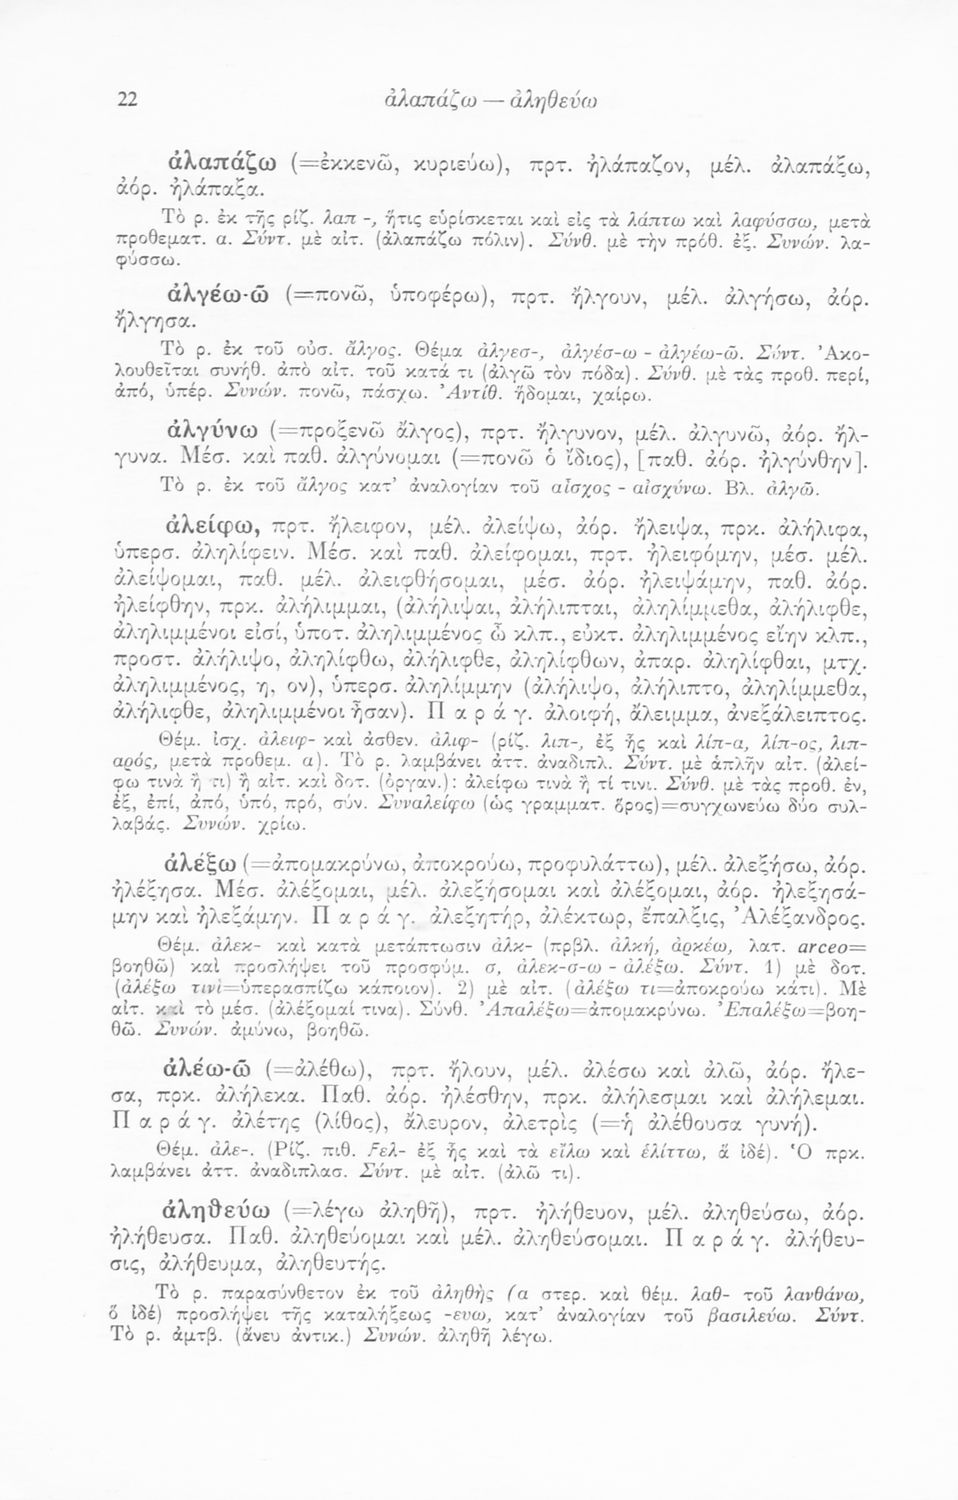 22 ἀλαπάζω — ἀληθεύω
ἀλαπάζω (=ἐκκενῶ, κυριεύω), πρτ. ἠλάπαζον, μέλ. ἀλαπάξω,
ἀόρ. ἠλάπαξα.
Τὸ ρ. ἐκ τῆς ρίζ. λαπ -, ἥτις εὑρίσκεται καὶ εἰς τὰ λάπτω καὶ λαφύσσω, μετὰ
προθεματ. α. Σύντ. μὲ αἰτ. (ἀλαπάζω πόλιν). Σύνθ. μὲ τὴν πρόθ. ἐξ. Συνών. λα-
φύσσω.
ἀλγέω-ῶ (=πονῶ, ὑποφέρω), πρτ. ἤλγουν, μέλ. ἀλγήσω, ἀόρ.
ἤλγησα.
Τὸ ρ. ἐκ τοῦ οὐσ. ἄλγος. Θέμα ἀλγεσ-, ἀλγέσ-ω - ἀλγέω-ῶ. Σύντ. Ἀκο-
λουθεῖται συνήθ. ἀπὸ αἰτ. τοῦ κατά τι (ἀλγῶ τὸν πόδα). Σύνθ. μὲ τὰς προθ. περί,
ἀπό, ὑπέρ. Συνών. πονῶ, πάσχω. Ἀντίθ. ἥδομαι, χαίρω.
ἀλγύνω (=προξενῶ ἄλγος), πρτ. ἤλγυνον, μέλ. ἀλγυνῶ, ἀόρ. ἤλ-
γυνα. Μέσ. καὶ παθ. ἀλγύνομαι (=πονῶ ὁ ἴδιος), [παθ. ἀόρ. ἠλγύνθην].
Τὸ ρ. ἐκ τοῦ ἄλγος κατ' ἀναλογίαν τοῦ αἶσχος - αἰσχύνω. Βλ. ἀλγῶ.
ἀλείφω, πρτ. ἤλειφον, μέλ. ἀλείψω, ἀόρ. ἤλειψα, πρκ. ἀλήλιφα,
ὑπερσ. ἀληλίφειν. Μέσ. καὶ παθ. ἀλείφομαι, πρτ. ἠλειφόμην, μέσ. μέλ.
ἀλείψομαι, παθ. μέλ. ἀλειφθήσομαι, μέσ. ἀόρ. ἠλειψάμην, παθ. ἀόρ.
ἠλείφθην, πρκ. ἀλήλιμμαι, (ἀλήλιψαι, ἀλήλιπται, ἀληλίμμεθα, ἀλήλιφθε,
ἀληλιμμένοι εἰσί, ὑποτ. ἀληλιμμένος ὦ κλπ., εὐκτ. ἀληλιμμένος εἴην κλπ.,
προστ. ἀλήλιψο, ἀληλίφθω, ἀλήλιφθε, ἀληλίφθων, ἀπαρ. ἀληλίφθαι, μτχ.
ἀληλιμμένος, η, ον), ὑπερσ. ἀληλίμμην (ἀλήλιψο, ἀλήλιπτο, ἀληλίμμεθα,
ἀλήλιφθε, ἀληλιμμένοι ἦσαν). Π α ρ ά γ. ἀλοιφή, ἄλειμμα, ἀνεξάλειπτος.
Θέμ. ἰσχ. ἀλειφ- καὶ ἀσθεν. ἀλιφ- (ρίζ. λιπ-, ἐξ ἧς καὶ λίπ-α, λίπ-ος, λιπ-
αρός, μετὰ προθεμ. α). Τὸ ρ. λαμβάνει ἀττ. ἀναδιπλ. Σύντ. μὲ ἁπλῆν αἰτ. (ἀλεί-
φω τινὰ ἤ τι) ἢ αἰτ. καὶ δοτ. (ὀργαν.): ἀλείφω τινὰ ἤ τί τινι. Σύνθ. μὲ τὰς προθ. ἐν,
ἐξ, ἐπί, ἀπό, ὑπό, πρό, σύν. Συναλείφω (ὡς γραμματ. ὅρος)=συγχωνεύω δύο συλ-
λαβάς. Συνών. χρίω.
ἀλέξω (=ἀπομακρύνω, ἀποκρούω, προφυλάττω), μέλ. ἀλεξήσω, ἀόρ.
ἠλέξησα. Μέσ. ἀλέξομαι, μέλ. ἀλεξήσομαι καὶ ἀλέξομαι, ἀόρ. ἠλεξησά-
μην καὶ ἠλεξάμην. Π α ρ ά γ. ἀλεξητήρ, ἀλέκτωρ, ἔπαλξις, Ἀλέξανδρος.
Θέμ. ἀλεκ- καὶ κατὰ μετάπτωσιν ἀλκ- (πρβλ. ἀλκή, ἀρκέω, λατ. arceo=
βοηθῶ) καὶ προσλήψει τοῦ προσφύμ. σ, ἀλεκ-σ-ω - ἀλέξω. Σύντ. 1) μὲ δοτ.
(ἀλέξω τινὶ=ὑπερασπίζω κάποιον). 2) μὲ αἰτ. (ἀλέξω τι=ἀποκρούω κάτι). Μὲ
αἰτ. καὶ τὸ μέσ. (ἀλέξομαί τινα). Σύνθ. Ἀπαλέξω=ἀπομακρύνω. Ἐπαλέξω=βοη-
θῶ. Συνών. ἀμύνω, βοηθῶ.
ἀλέω-ῶ (=ἀλέθω), πρτ. ἤλουν, μέλ. ἀλέσω καὶ ἀλῶ, ἀόρ. ἤλε-
σα, πρκ. ἀλήλεκα. Παθ. ἀόρ. ἠλέσθην, πρκ. ἀλήλεσμαι καὶ ἀλήλεμαι.
Π α ρ ά γ. ἀλέτης (λίθος), ἄλευρον, ἀλετρὶς (=ἡ ἀλέθουσα γυνή).
Θέμ. ἀλε-. (Ρίζ. πιθ. Fελ- ἐξ ἧς καὶ τὰ εἴλω καὶ ἑλίττω, ἃ ἰδέ). Ὁ πρκ.
λαμβάνει ἀττ. ἀναδιπλασ. Σύντ. μὲ αἰτ. (ἀλῶ τι).
ἀληθεύω (=λέγω ἀληθῆ), πρτ. ἠλήθευον, μέλ. ἀληθεύσω, ἀόρ.
ἠλήθευσα. Παθ. ἀληθεύομαι καὶ μέλ. ἀληθεύσομαι. Π α ρ ά γ. ἀλήθευ-
σις, ἀλήθευμα, ἀληθευτής.
Τὸ ρ. παρασύνθετον ἐκ τοῦ ἀληθὴς (α στερ. καὶ θέμ. λαθ- τοῦ λανθάνω,
ὃ ἰδέ) προσλήψει τῆς καταλήξεως -ευω, κατ' ἀναλογίαν τοῦ βασιλεύω. Σύντ.
Τὸ ρ. ἀμτβ. (ἄνευ ἀντικ.) Συνών. ἀληθῆ λέγω.